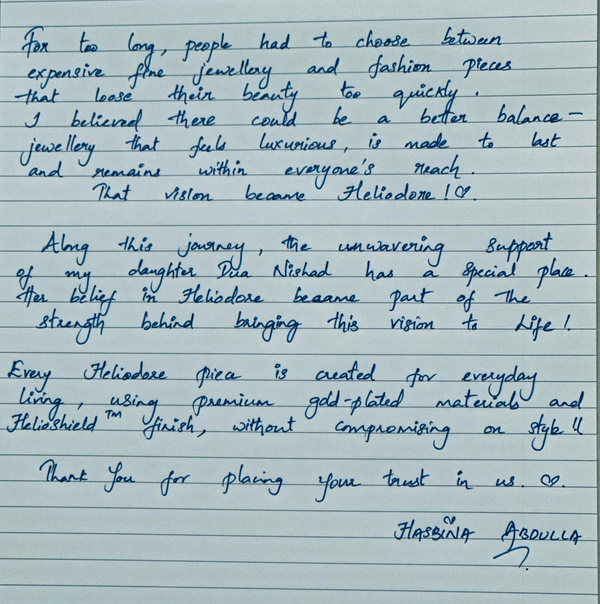 For too long, people had to choose between
expensive fine jewellery and fashion pieces
that loose their beauty too quickly.
I believed there could be a better balance –
jewellery that feels luxurious, is made to last
and remains within everyone's reach.
That vision became Heliodore! ♡.
Along this journey, the unwavering support
of my daughter Dua Nishad has a special place.
Her belief in Heliodore became part of the
strength behind bringing this vision to Life!
Every Heliodore piece is created for everyday
living, using premium gold-plated materials and
Helioshield™ finish, without compromising on style!!
Thank You for placing your trust in us. ♡.
HASBINA ABDULLA